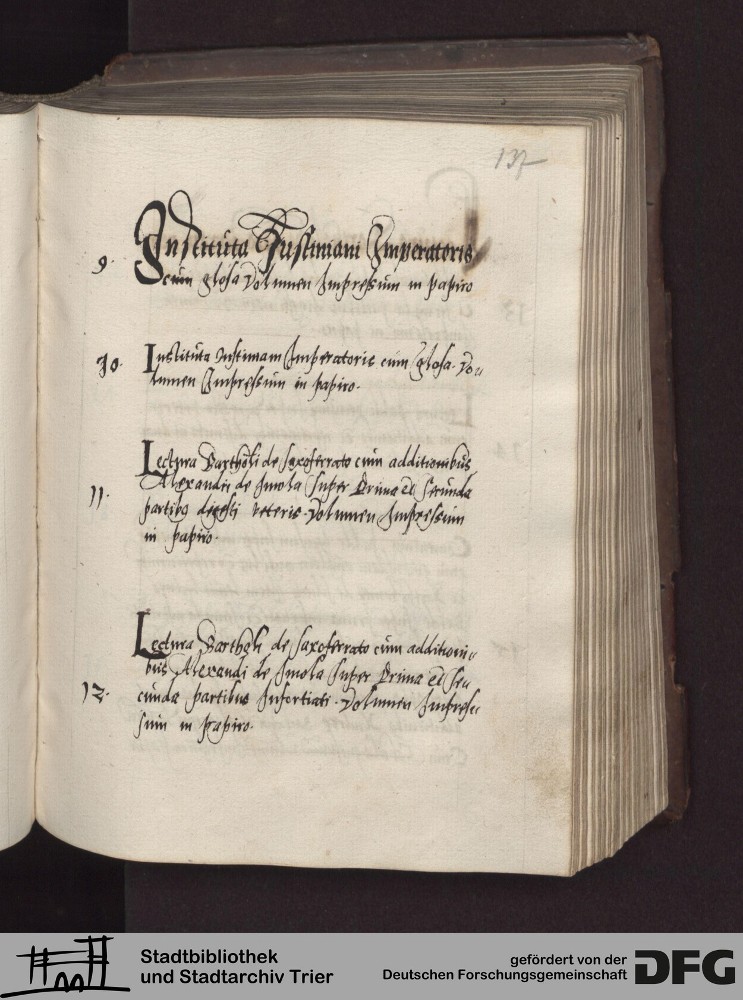 137
9. Instituta Justiniani Imperatoris
cum glosa Volumen Impressum in papiro
10. Instituta Justiniani Imperatoris cum glosa. Vo„
lumen Impressum in papiro.
Lectura Bartholi de saxoferrato cum additionibus
Alexandri de Imola super Prima et secunda
11. partibus digesti veteris. Volumen Impressum
in papiro.
Lectura Bartholi de saxoferrato cum additioni„
bus Alexandri de Imola super Prima et se„
12. cunda partibus Infortiati. Volumen Impres„
sum in papiro.
Stadtbibliothek
und Stadtarchiv Trier
gefördert von der
Deutschen Forschungsgemeinschaft
DFG